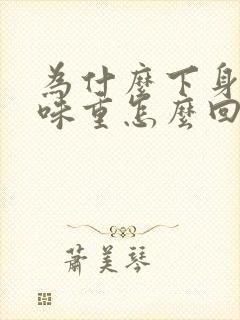 為什麼下身
味重怎麼回
蕭美琴